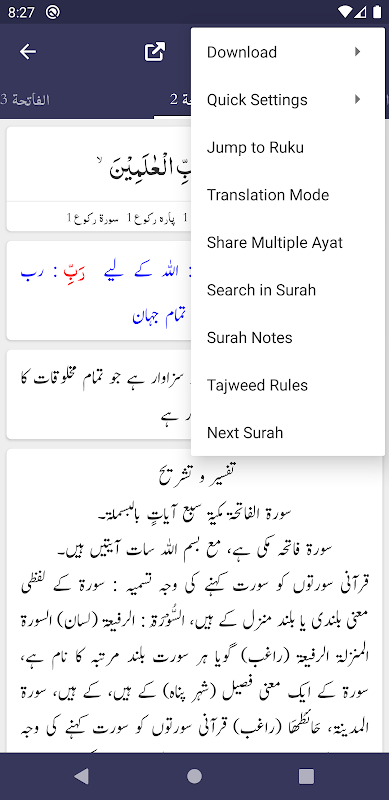 8:27
الفاتحة 3
2
Download
Quick Settings
Jump to Ruku
Translation Mode
Share Multiple Ayat
Search in Surah
Surah Notes
Tajweed Rules
Next Surah
بِّ الْعٰلَمِيْنَ ۙ
1 پارہ رکوع 1 سورۃ رکوع 1
: اللہ کے لیے رَبِّ : رب
تمام جہان
سزاوار ہے جو تمام مخلوقات کا
ر ہے
تفسیر و تشریح
سورۃ الفاتحۃ مکیۃ سبع آیاتٍ بالبسملۃ۔
سورۃ فاتحہ مکی ہے، مع بسم اللہ سات آیتیں ہیں۔
قرآنی سورتوں کو سورت کہنے کی وجہ تسمیہ : سورۃ کے لفظی
معنی بلندی یا بلند منزل کے ہیں، السُّوْرَۃ : الرفیعۃ (لسان) السورۃ
المنزلۃ الرفیعۃ (راغب) گویا ہر سورت بلند مرتبہ کا نام ہے،
سورۃ کے ایک معنی فصیل (شہر پناہ) کے ہیں، کے ہیں، سورۃ
المدینۃ، حَائطُھَا (راغب) قرآنی سورتوں کو سورت کہنے کی وجہ